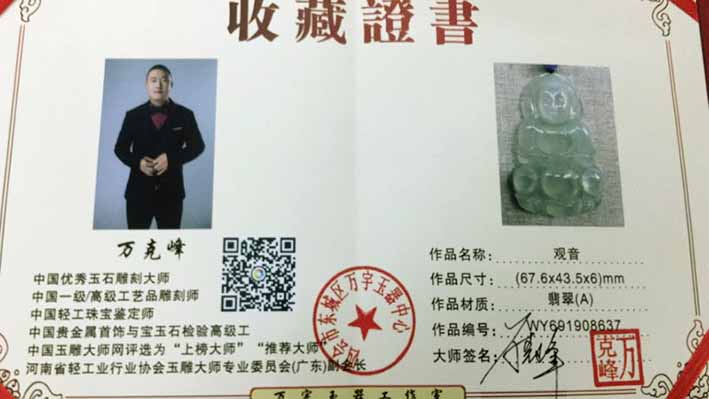 收藏證書
万克峰
中国优秀玉石雕刻大师
中国一级/高级工艺品雕刻师
中国轻工珠宝鉴定师
中国贵金属首饰与宝玉石检验高级工
中国玉雕大师网评选为“上榜大师”“推荐大师”
河南省轻工业行业协会玉雕大师专业委员会(广东)副会长
四会市东城区万字玉器中心
作品名称: 观音
作品尺寸: (67.6x43.5x6)mm
作品材质: 翡翠(A)
作品编号: WY691908637
大师签名: 万克峰
万克峰
万字玉器工作室